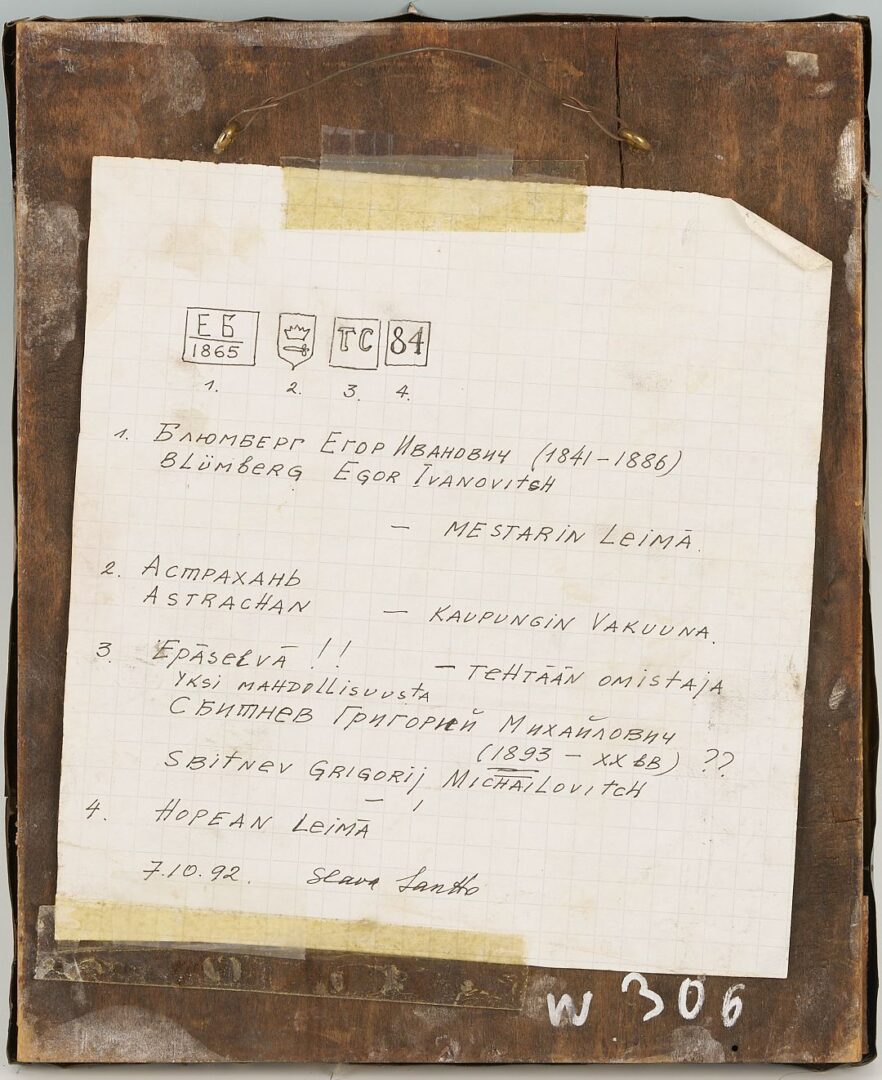 ЕБ 1865 ТС 84
1. 2. 3. 4.
1. Блюмберг Егор Иванович (1841-1886)
Blümberg Egor Ivanovitsh
- Mestarin Leimä.
2. Астрахань
Astrachan - Kaupungin Vakuuna.
3. Epäselvä !! - Tehtään omistaja
Yksi mahdollisuusta
Сбитнев Григорий Михайлович
(1893 - XX вв) ??
Sbitnev Grigorij Michailovitch
4. Hopean Leimä
7.10.92. Slava
W 306